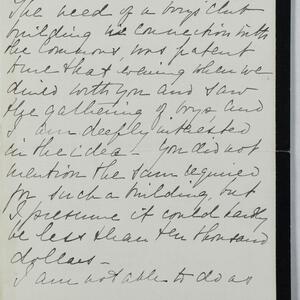 The need of a boys' club
building in connection with
the Commons, was patent
to me that evening when we
dined with you and saw
the gathering of boys, and
I am deeply interested
in the idea — You did not
mention the sum required
for such a building, but
I presume it could hardly
be less than ten thousand
dollars —
I am not able to do as